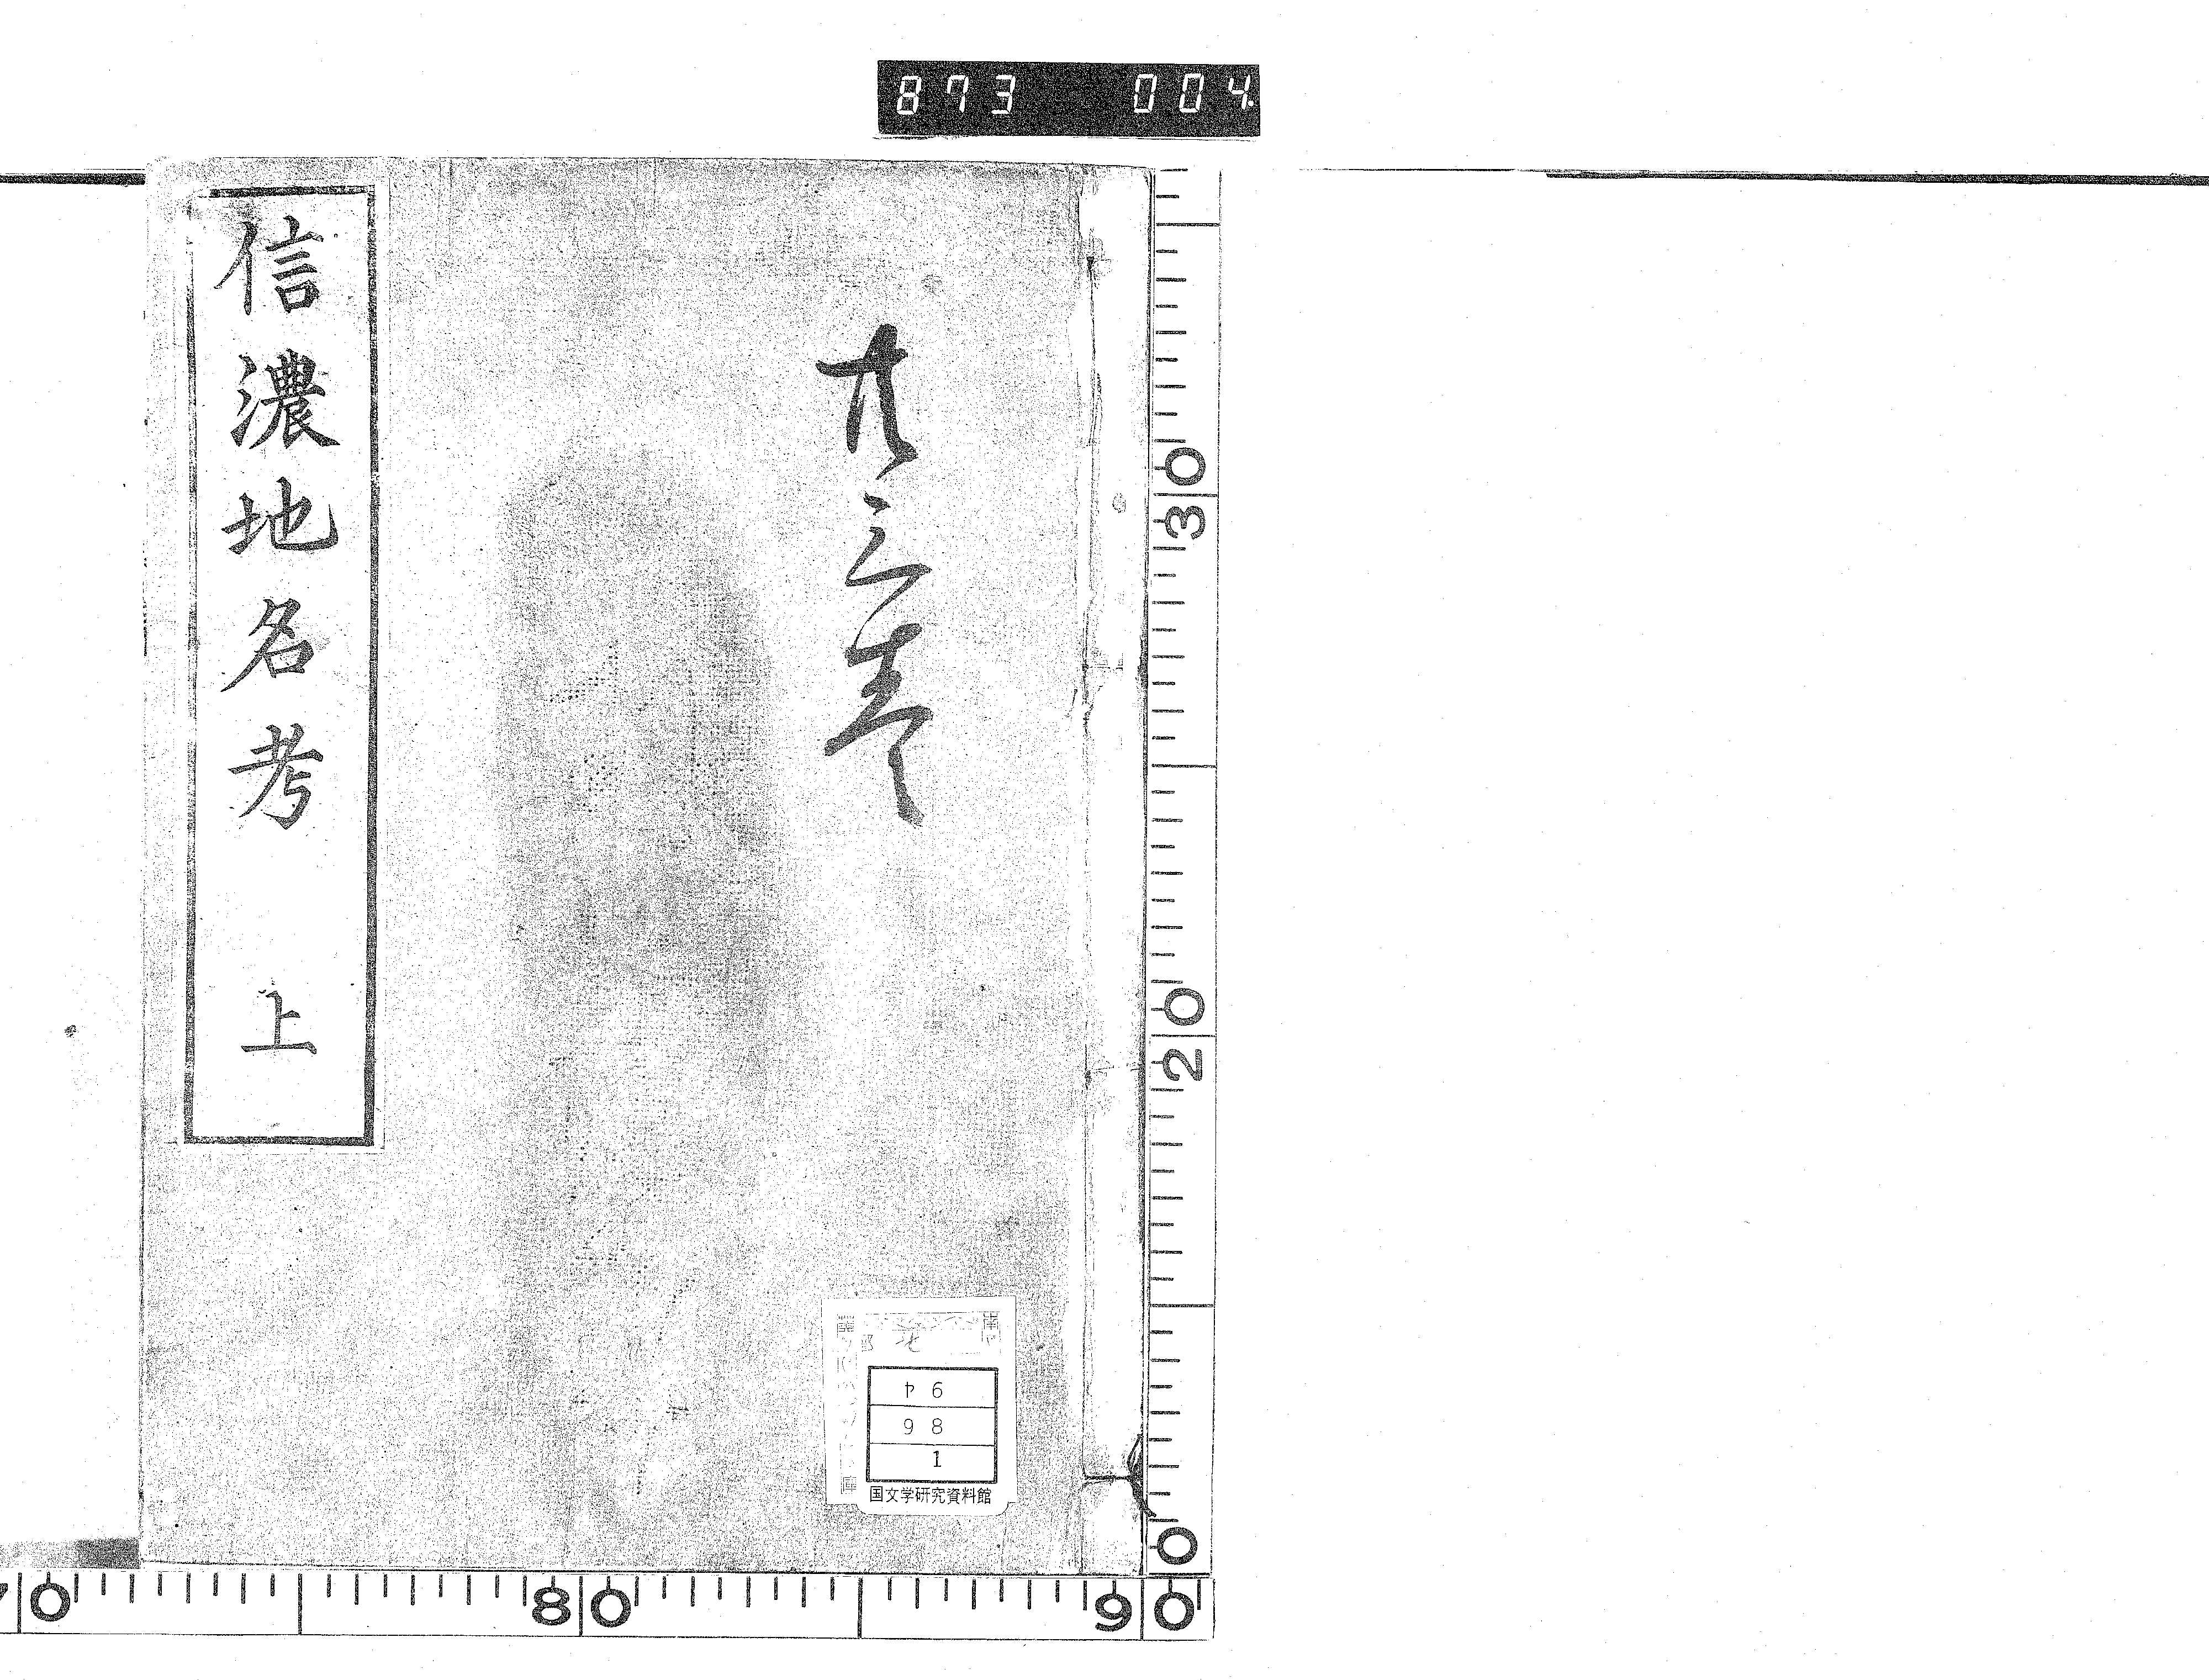 873 004
共三巻
信濃地名考 上
ヤ6
98
1
国文学研究資料館
30
20
0
70 80 90